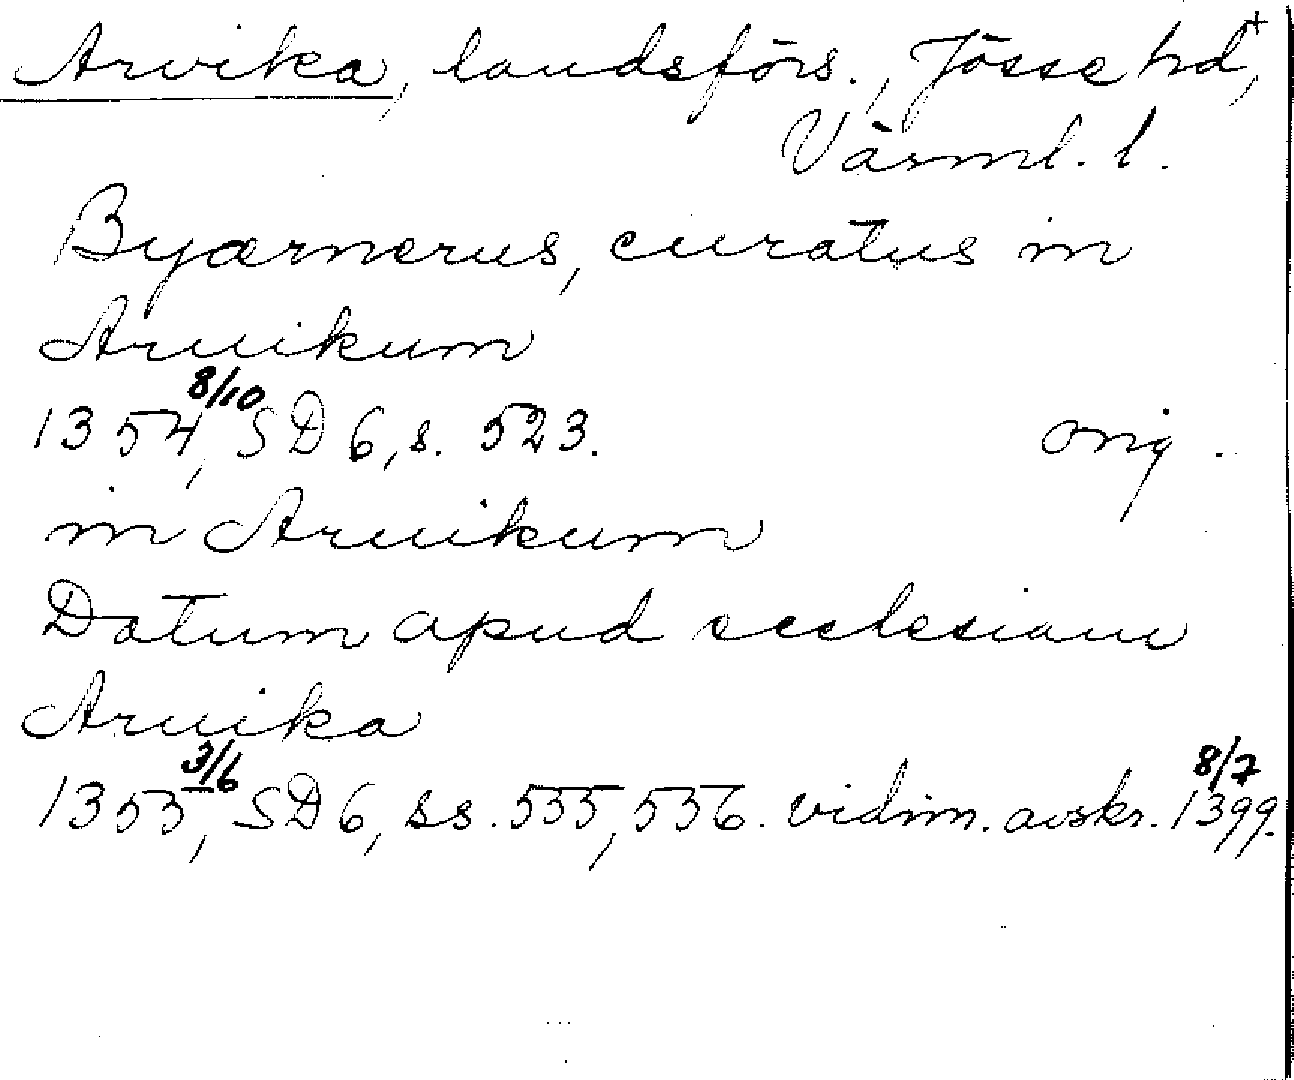 Arvika, landsförs., Jösse hd+,
Värml. l.
Byærnerus, curatus in
Aruikum
1354 8/10, SD 6, s. 523. orig.
in Aruikum
Datum apud ecclesiam
Aruika
1353 3/6, SD 6, ss. 535, 536. vidim. avskr. 8/7 1399.